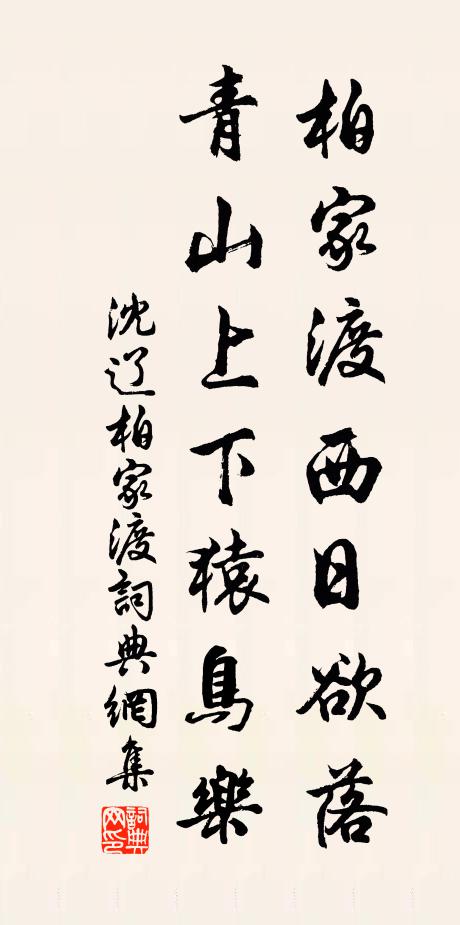 柏家渡西日欲落
青山上下猿鳥樂
沈辽柏家渡詞典網集
詞典网印